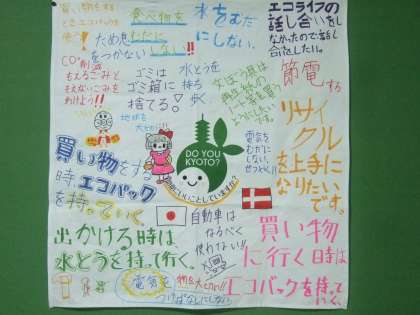 買い物を
するとき
エコバックを
使う!
食べ物を
むだに
しない!!
水をむだ
にしない。
エコライフの
話し合いをし
なかったので話し
合をしたい。
ため息
をつかない
CO²削減
もえるごみと
もえないごみを
わけよう!!
ゴミは
ゴミ箱に
捨てる!
水とうを
持ち
歩く
節電する
リサイ
クル
を上手に
なりたいです。
地球を
大切に!!
電気を
むだに
しない、
せつやく!!
買い物をする
時、エコバック
を持っていく
DO YOU
KYOTO?
環境にいいことしていますか?
自動車は
なるべく
使わない!!
出かける時は
水とうを持って行く。
買い物
に行く時は
エコバックを持って
いく。
電気を
つけっぱなしにしない
物を大切に!!